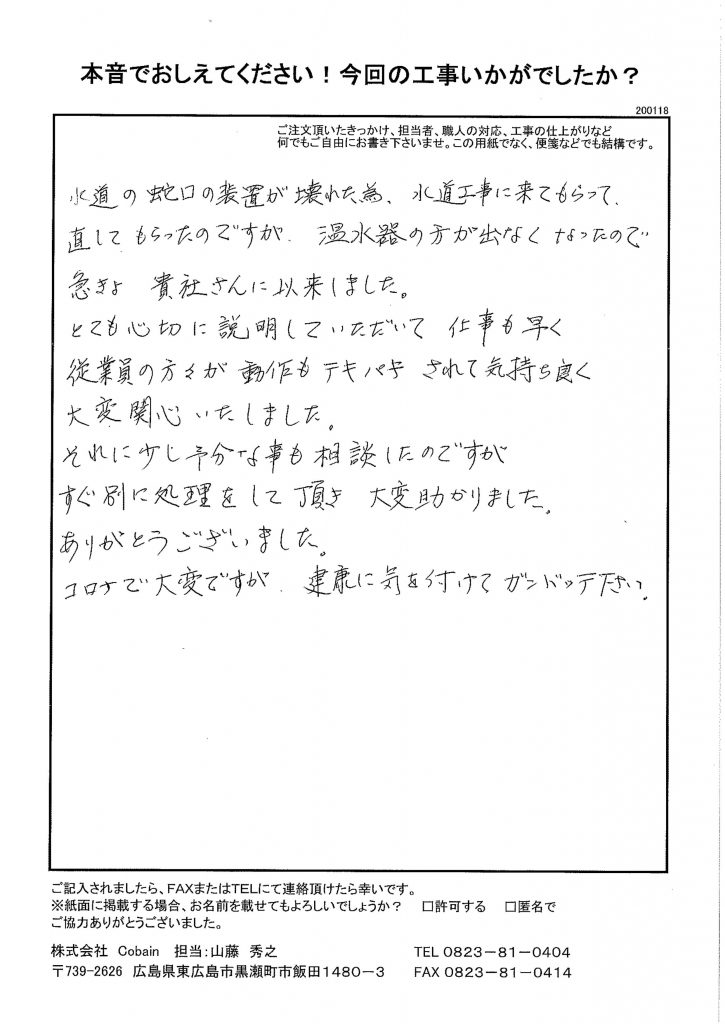 本音でおしえてください！今回の工事いかがでしたか？
200118
ご注文頂いたきっかけ、担当者、職人の対応、工事の仕上がりなど
何でもご自由にお書き下さいませ。この用紙でなく、便箋などでも結構です。
水道の蛇口の装置が壊れた為、水道工事に来てもらって、
直してもらったのですが、温水器の方が出なくなったので
急きょ 貴社さんに以来しました。
とても心切に説明していただいて 仕事も早く
従業員の方々が動作もテキパキされて気持ち良く
大変関心いたしました。
それに少し予分な事も相談したのですが
すぐ別に処理をして頂き 大変助かりました。
ありがとうございました。
コロナで大変ですが、健康に気を付けてガンバッテ下さい。
ご記入されましたら、FAXまたはTELにて連絡頂けたら幸いです。
※紙面に掲載する場合、お名前を載せてもよろしいでしょうか？ □許可する □匿名で
ご協力ありがとうございました。
株式会社 Cobain 担当：山藤 秀之 TEL 0823－81－0404
〒739-2626 広島県東広島市黒瀬町市飯田1480－3 FAX 0823－81－0414